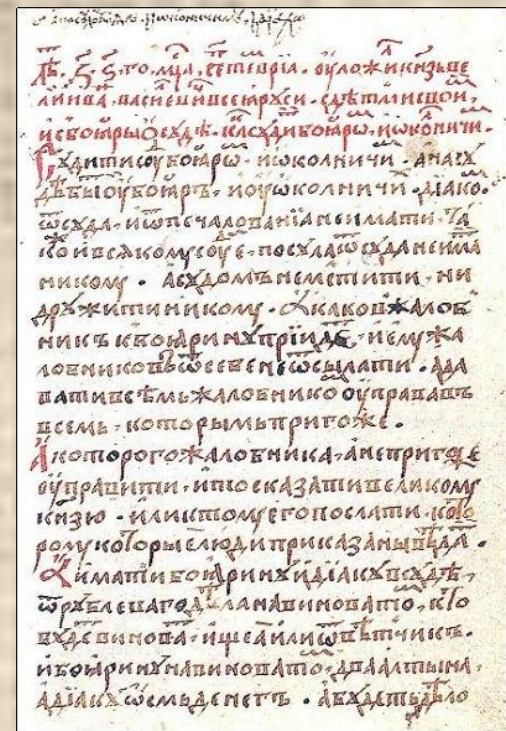 лѣ. ҂ѕ҃. ѕ҃. го. мⷭ҇ца, сеⷫ҇тевріа. оуложи кн҃ѕь ве
ликіи иваⷩ҇. васиевиⷱ҇ всеѧ руси. с дѣтми свои,
и с боѧры ѡ судѣ. каⷦ҇ судиⷮ҇ боѧрѡ. и ѡкоⷧ҇ничи.
Судити соуⷣ҇ боѧрѡ. и ѡколничи. а на су
дѣ быⷮ҇ оу боѧръ. и оу ѡколничиⷯ҇ діако.
ѿ суда. и ѿ печалованіа не имати. та
коⷤ҇ и всѧкому соуⷣ҇е. посула ѿ суда не има
никому. а судомъ не мстити. ни
дружити никому. а каков жалоб
никъ к боѧрину прїидеⷮ҇. и ему жа
лобниковъ ѿ себе не ѿсылати. а да
вати всѣмъ жалобнико оуправа въ
всемь. которымъ пригоже.
А которого жалобника. а не пригоже
оуправити. и то сказати великому
кнѕю. или к тому его послати. кото
рому которые люди приказаны вѣда.
А имати боѧрину и діаку в судѣ,
ѿ рублеваго дѣла на виноватоⷨ҇. кто
будеⷮ҇ виноваⷮ҇. ищеа или ѿвѣтчикъ.
и боѧрину на виноватоⷨ҇. два алтына.
а діаку ѡсмь денегъ. а будетъ дѣло